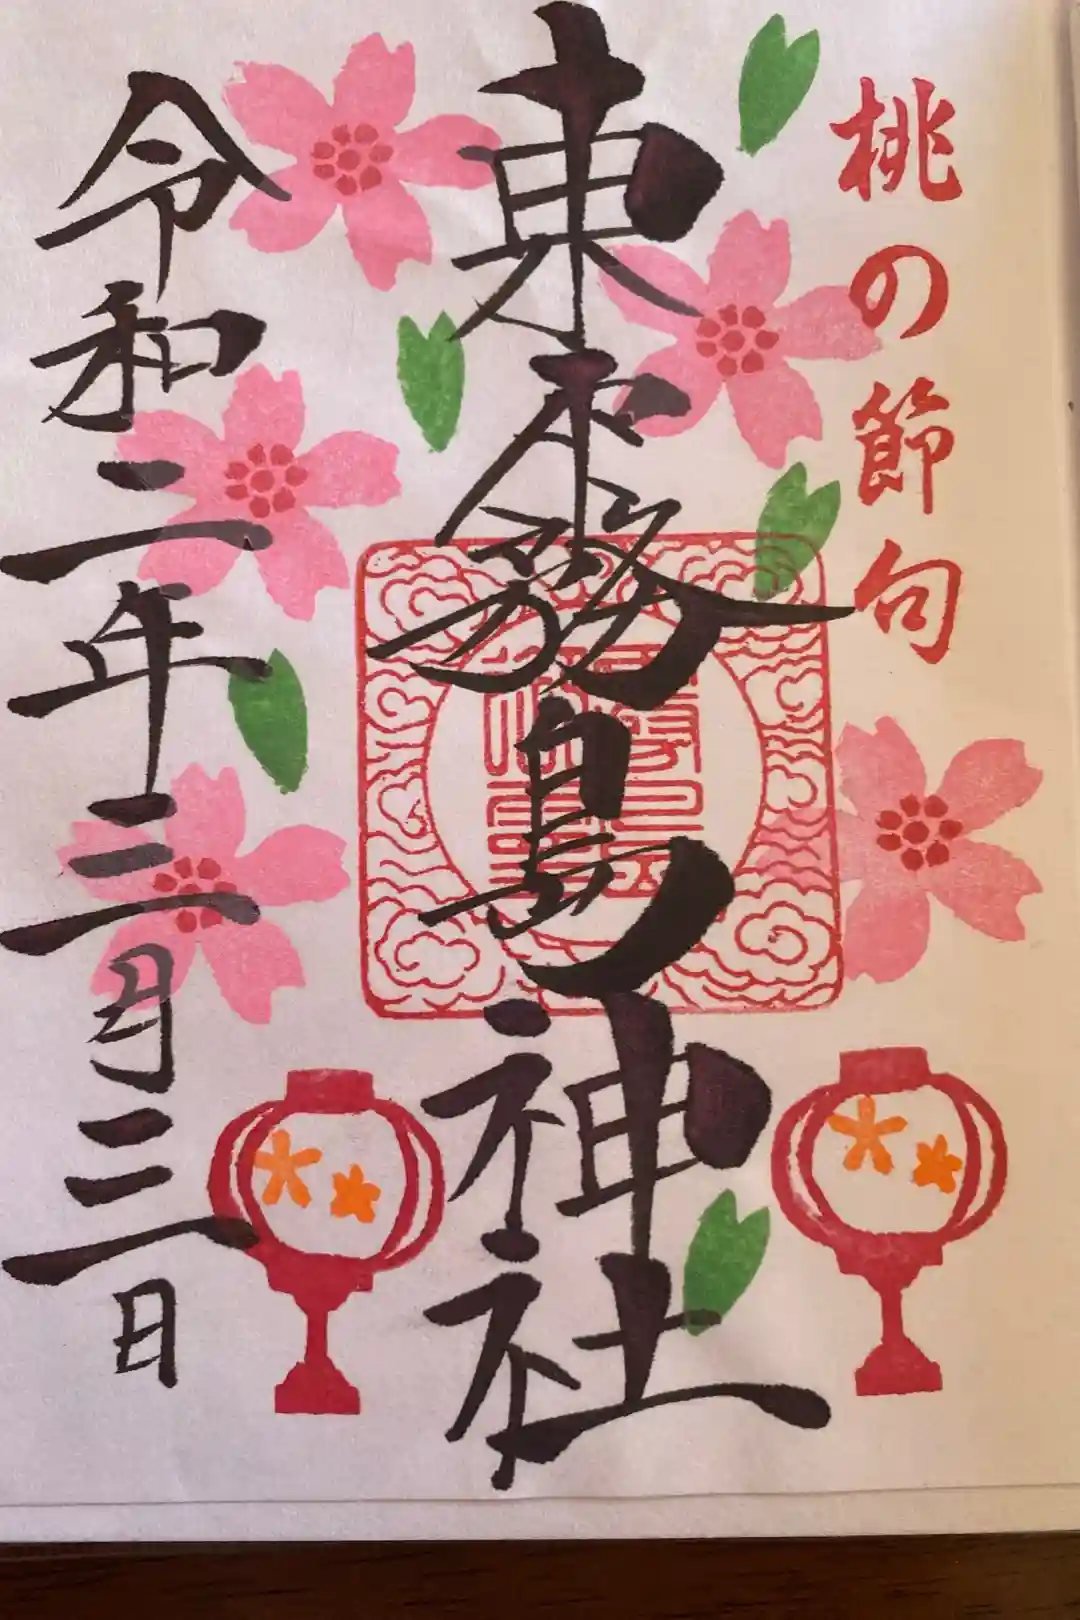 桃の節句
東霧島神社
令和二年三月三日